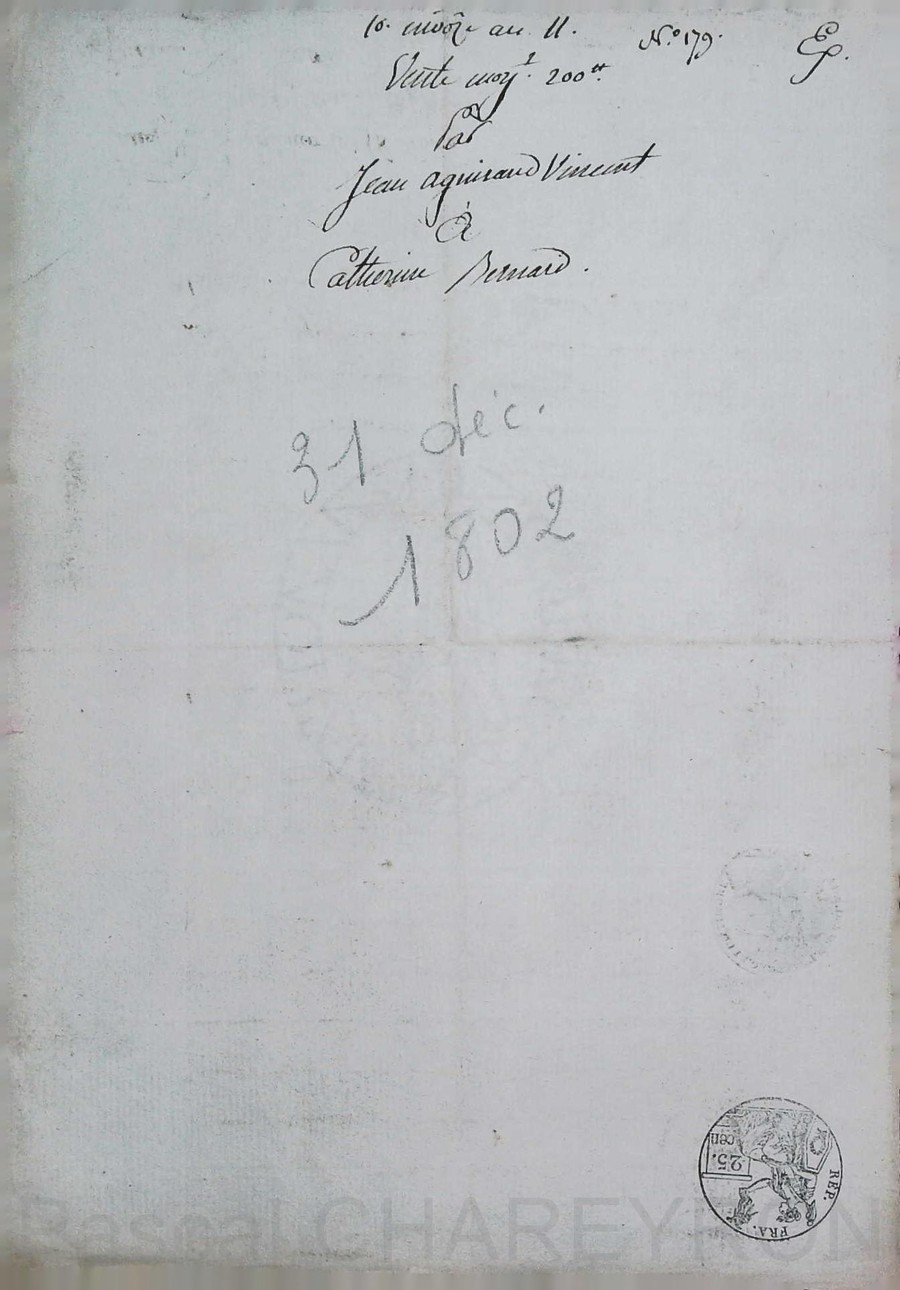 10. nivôse an 11. N.º 179. E.
Vente moy.t 200tt.
Par
Jean aguiraud Vincent
à
Catherine Bernard.
31 déc.
1802
25.
cen
REP.
FRA.
Pascal CHAREYRON